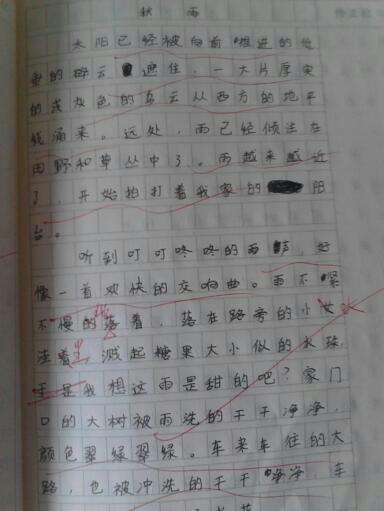 秋雨
太阳已经被向前推进的低
垂的碎云遮住，一大片厚实
的浅灰色的乌云从西方的地平
线涌来。远处，雨已经倾注在
田野和草丛中了。雨越来越近
了，开始拍打着我家的阳
台。
听到叮叮咚咚的雨声，好
像一首欢快的交响曲。雨不紧
不慢的落着，落在路旁的小水
洼着，溅起糖果大小似的水珠，
我想这雨是甜的吧？家门
口的大树被雨洗的干干净净，
颜色翠绿翠绿。车来车往的大
路，也被冲洗的干干净净，车